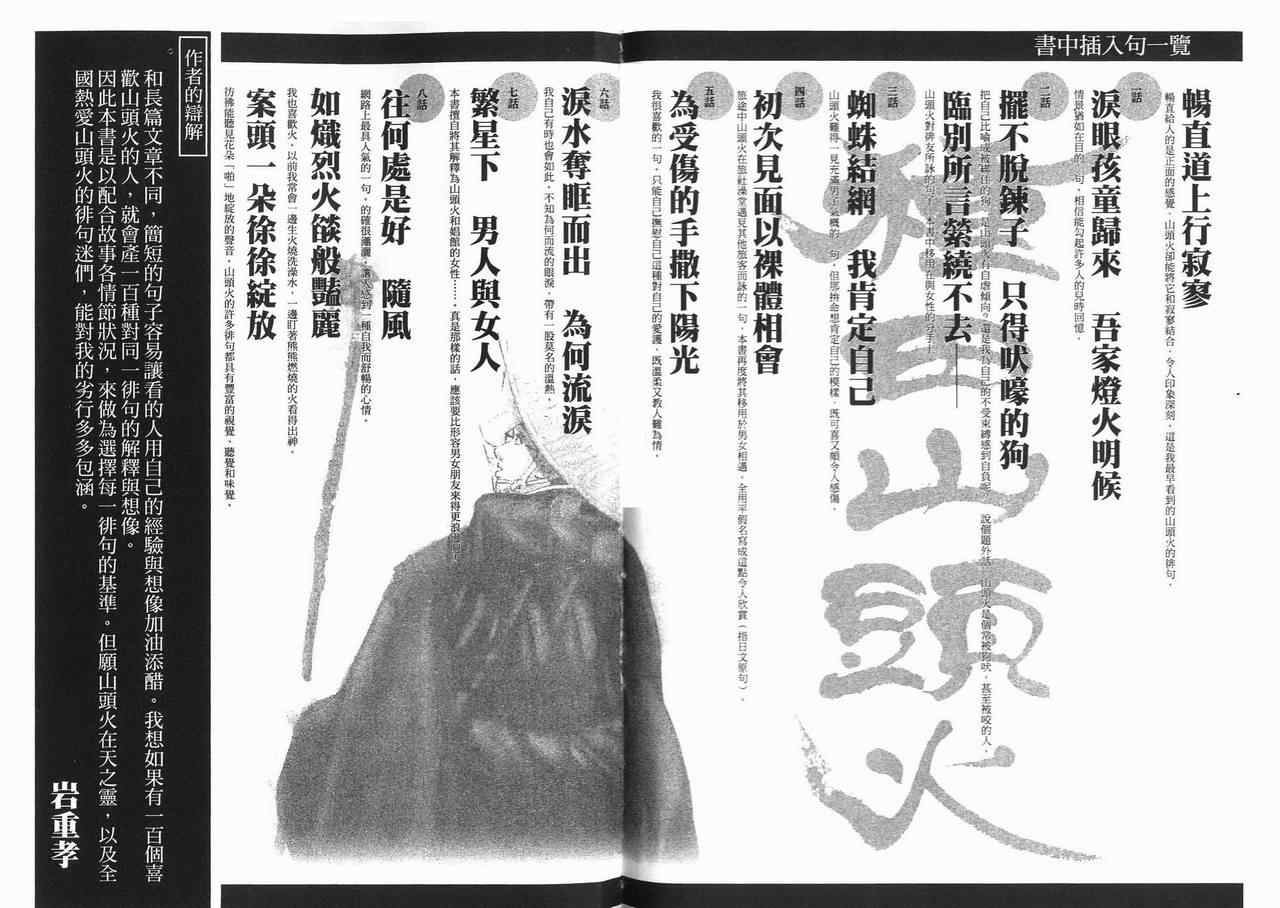 書中插入句一覽
暢直道上行寂寥
暢直給人的是正面的感覺，山頭火卻能將它和寂寥結合，令人印象深刻，這是我最早看到的山頭火的徘句。
一話
淚眼孩童歸來　吾家燈火明候
情景猶如在目的一句，相信能勾起許多人的兒時回憶。
二話
擺不脫鍊子　只得吠嚎的狗
把自己比喻成被
的狗，是山頭火有自虐傾向？還是我為自己的不受束縛感到自負呢
說個題外話，山頭火是個常被狗吠，甚至被咬的人。
臨別所言縈繞不去——
山頭火對徘友所詠的句
書中移用在與女性的分手上
三話
蜘蛛結網　我肯定自己
山頭火難得一見充滿男子氣概的一句，但那拚命想肯定自己的模樣，既可喜又頗令人感傷。
四話
初次見面以裸體相會
旅途中山頭火在旅社澡堂遇見其他旅客而詠的一句，本書再度將其移用於男女相遇，全用平假名寫成這點令人欣賞（指日文原句）。
五話
為受傷的手撒下陽光
我很喜歡的一句，只能自己撫慰自己這種對自己的愛護，既溫柔又教人難為情。
六話
淚水奪眶而出　為何流淚
我自己有時也會如此，不知為何而流的眼淚，帶有一股莫名的溫熱。
七話
繁星下　男人與女人
本書擅自將其解釋為山頭火和娼館的女性……，真是那樣的話，應該要比形容男女朋友來得更浪漫
八話
往何處是好　隨風
網路上最具人氣的一句，的確很瀟灑，讓人感到一種自我而舒暢的心情。
如熾烈火燄般豔麗
我也喜歡火，以前我常會一邊生火燒洗澡水，一邊盯著熊熊燃燒的火看得出神。
案頭一朵徐徐綻放
彷彿能聽見花朵「啪」地綻放的聲音，山頭火的許多徘句都具有豐富的視覺、聽覺和味覺。
山頭火
作者的辯解
和長篇文章不同，簡短的句子容易讓看的人用自己的經驗與想像加油添醋。我想如果有一百個喜
歡山頭火的人，就會產一百種對同一徘句的解釋與想像。
因此本書是以配合故事各情節狀況，來做為選擇每一徘句的基準。但願山頭火在天之靈，以及全
國熱愛山頭火的徘句迷們，能對我的劣行多多包涵。
岩重孝